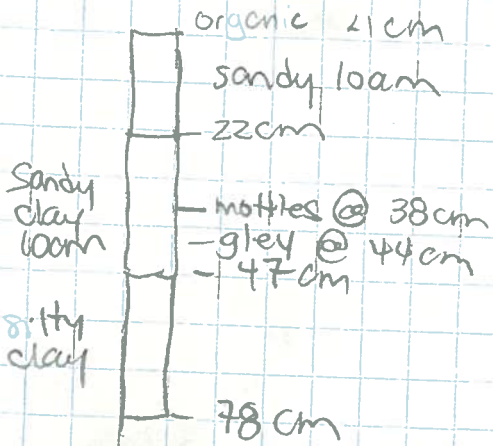 organic <1cm
sandy loam
22cm
sandy
clay
loam
mottles @ 38cm
gley @ 44cm
47cm
silty
clay
78cm